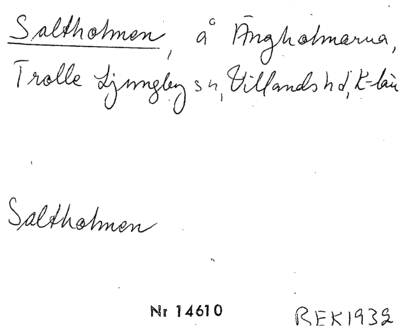 Saltholmen, å Ängholmarna,
Trolle Ljungby sn, Villands hd, K-län
Saltholmen
Nr 14610
REK1932